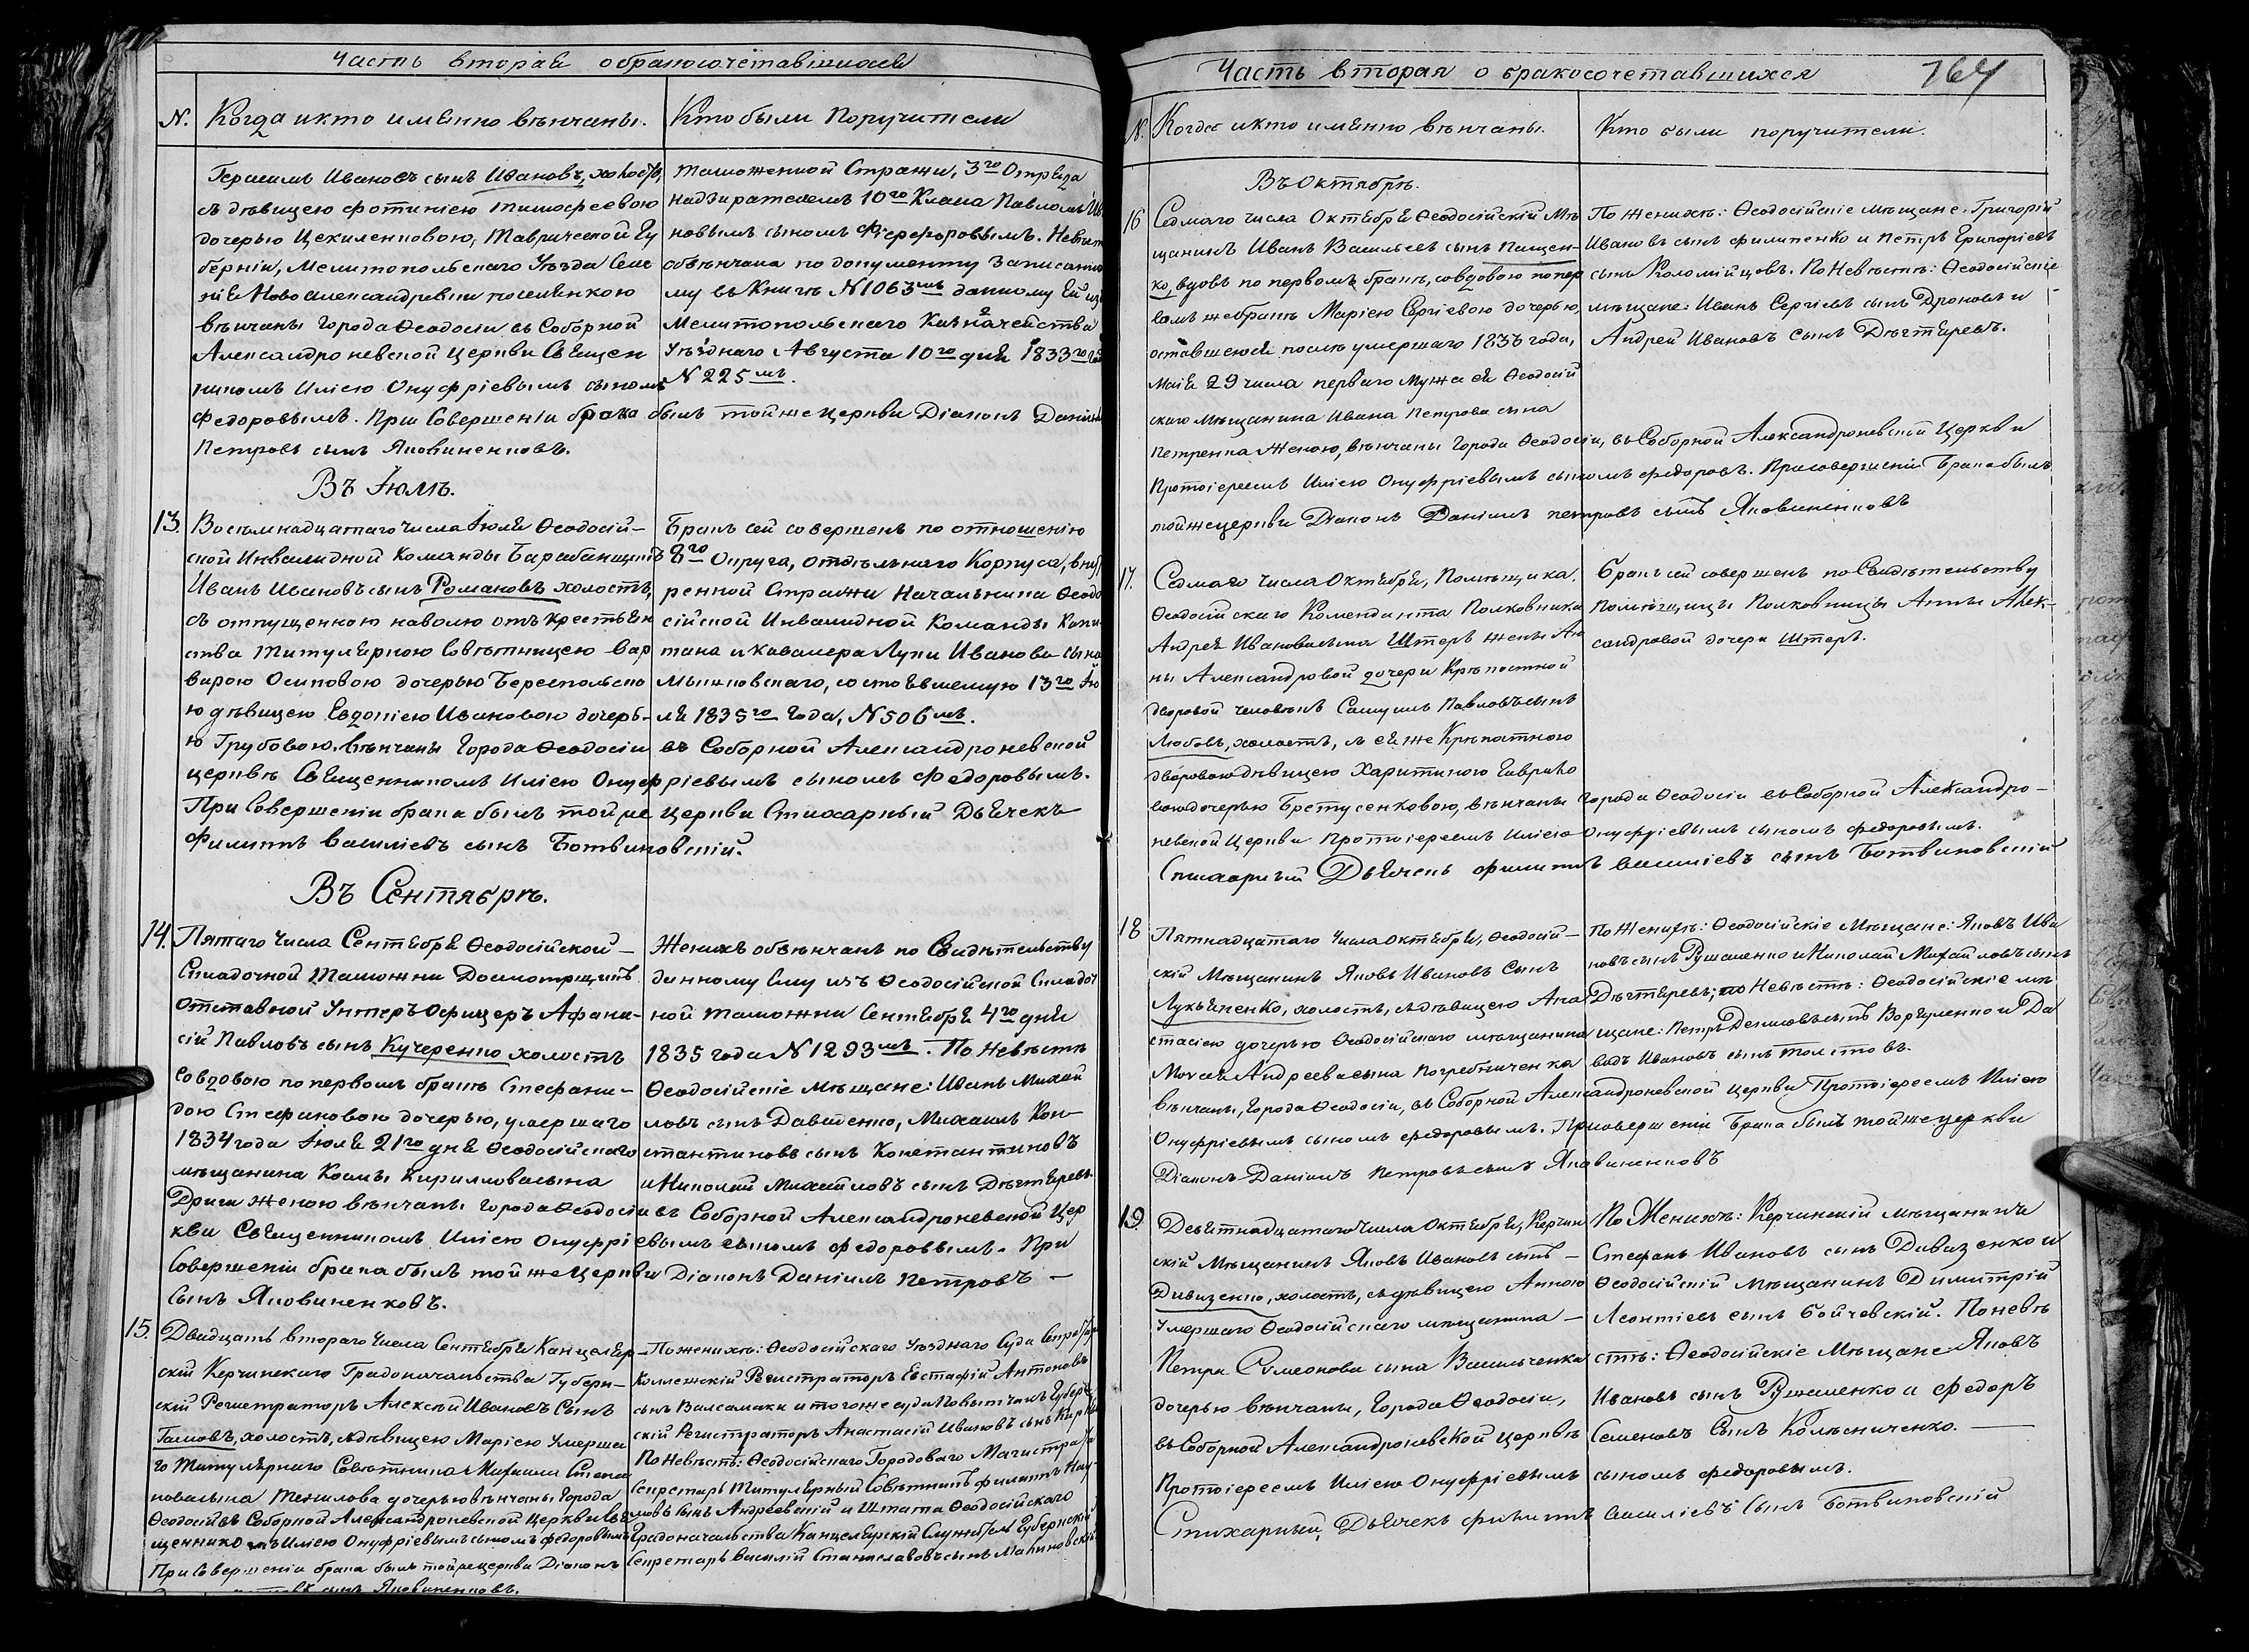 Часть вторая о бракосочетавшихся
N. Когда и кто именно вѣнчаны. Кто были Поручители
Герасимъ Ивановъ сынъ Ивановъ, холостъ,
съ дѣвицею Фотиніею Тимофеевою
дочерью Цекиленковою, Таврической Гу
берніи, Мелитопольскаго Уѣзда Селе
нія Ново Александревки поселенкою
вѣнчаны Города Ѳеодосіи въ Соборной
Александроневской Церкви Священ
никомъ Иліею Онуфріевымъ сыномъ
Федоровымъ. При Совершеніи брака былъ тойже Церкви Діаконъ Даніилъ
Петровъ сынъ Яковиненковъ.
Таможенной Стражи, 3го Отряда
Надзирателемъ 10го Класа Павломъ
новымъ сыномъ Невѣста
обвѣнчана по документу Записанно
му въ Книгѣ N 1063мъ данному Ей изъ
Мелитопольскаго Казначейства
Уѣзднаго Августа 10го дня 1833го
N 225мъ.
Въ Іюлѣ.
13. Восемнадцатаго Числа Іюля Ѳеодосій-
ской Инвалидной Команды Барабанщикъ
Иванъ Ивановъ сынъ Романовъ холостъ,
съ отпущенною наволю отъ Крестьян
ства Титулярною Совѣтницею Вар
варою Осиповою дочерью Береспольско
ю дѣвицею Евдокіею Ивановою дочерь-
ю Грубовою. Вѣнчаны Города Ѳеодосіи въ Соборной Александроневской
церквѣ Священникомъ Иліею Онуфріевымъ сыномъ Федоровымъ.
При Совершеніи брака былъ тойже Церкви Стихарный Дьячекъ
Филиппъ Василіевъ сынъ Ботвиновскій.
Бракъ сей совершенъ по отношенію
8го Округа, отдѣльнаго Корпуса, внут
ренной Стражи Начальника Ѳеодо
сійской Инвалидной Команды Капи
тана и Кавалера Луки Иванова сына
Мышковскаго, состоявшемуся 13го Ію
ля 1835го Года, N 506мъ.
Въ Сентябрѣ.
14. Пятаго Числа Сентября Ѳеодосійской
Складочной Таможни Досмотрщикъ
Отставной Унтеръ Офицеръ Афана-
сій Павловъ сынъ Кучеренко холостъ
со вдовою по первомъ бракѣ Стефани-
дою Стефановою дочерью, умершаго
1834 года Іюля 21го дня Ѳеодосійскаго
мѣщанина Космы Кириллова сына
Дриги Женою вѣнчаны Города Ѳеодосіи въ Соборной Александроневской Цер
кви Священникомъ Иліею Онуфріевымъ сыномъ Федоровымъ. При
Совершеніи брака былъ тойже Церкви Діаконъ Даніилъ Петровъ
Сынъ Яковиненковъ.
Женихъ обвѣнчанъ по Свидѣтельству
данному Ему изъ Ѳеодосійской Складоч
ной Таможни Сентября 4го дня
1835 года N 1293мъ. По Невѣстѣ
Ѳеодосійскіе Мѣщане: Иванъ Михай
ловъ сынъ Давиденко, Михаилъ Кон-
стантиновъ сынъ Константиновъ
и Николай Михайловъ сынъ Дѣгтяревъ.
15. Двадцать втораго Числа Сентября Канцеляр-
скій Керчинскаго Градоначальства Губерн-
скій Регистраторъ Алексѣй Ивановъ Сынъ
холостъ, съ дѣвицею Маріею Умерша
го Титулярнаго Совѣтника Михаила Степа
нова сына дочерью вѣнчаны Города
Ѳеодосіи въ Соборной Александроневской Церкви Свя
щенникомъ Иліею Онуфріевымъ сыномъ Федоровымъ
При Совершеніи брака былъ тойже церкви Діаконъ
сынъ Яковиненковъ.
По женихѣ: Ѳеодосійскаго Уѣзднаго Суда Секретарь
Коллежскій Регистраторъ Евстафій Антоновъ
сынъ Валсамаки и тогоже суда Повытчикъ Губерн
скій Регистраторъ Анастасій Ивановъ сынъ
По Невѣстѣ: Ѳеодосійскаго Городоваго Магистрата
Секретарь Титулярный Совѣтникъ Филиппъ
сынъ Андреевскій и Штата Ѳеодосійскаго
Градоначальства Канцелярскій Служитель Губернскій
Секретарь Василій Станиславовъ сынъ
Часть вторая о бракосочетавшихся 764
N. Когда и кто именно вѣнчаны. Кто были поручители.
Въ Октябрѣ.
16 Седмаго числа Октября Ѳеодосійскій Мѣ
щанинъ Иванъ Васильевъ сынъ Пащен-
ко, вдовъ по первомъ бракѣ, со вдовою по пер
вомъ же бракѣ Маріею Сергіевою дочерью,
оставшеюся послѣ умершаго 1835 года,
Маія 29 числа перваго Мужа ея Ѳеодосій
скаго Мѣщанина Ивана Петрова сына
Петренка Женою, вѣнчаны Города Ѳеодосіи, въ Соборной Александроневской Церкви
Протоіереемъ Иліею Онуфріевымъ сыномъ Федоровъ. При совершеніи Брака былъ
тойже церкви Діаконъ Даніилъ Петровъ сынъ Яковиненковъ
По Женихѣ: Ѳеодосійскіе мѣщане: Григорій
Ивановъ сынъ Филипенко и Петръ Григоріевъ
сынъ Коломійцовъ. По Невѣстѣ: Ѳеодосійскіе
мѣщане: Иванъ Сергіевъ сынъ Дроновъ и
Андрей Ивановъ Сынъ Дѣгтяревъ.
17. Седмаго Числа Октября, Помѣщика,
Ѳеодосійскаго Коменданта Полковника
Андрея Иванова сына Штеръ жены Ан
ны Александровой дочери Крѣпостной
дворовой человѣкъ Самуилъ Павловъ сынъ
Любовъ, холостъ, съ ея же Крѣпостною
дворовою дѣвицею Харитиною Гаврило
вою дочерью Бретусенковою, вѣнчаны Города Ѳеодосіи въ Соборной Александро-
невской Церкви Протоіереемъ Иліею Онуфріевымъ сыномъ Федоровымъ.
Стихарный Дьячекъ Филиппъ Василіевъ сынъ Ботвиновскій
Бракъ сей совершенъ по Свидѣтельству
Помѣщицы Полковницы Анны Алек-
сандровой дочери Штеръ.
18 Пятнадцатаго Числа Октября, Ѳеодосій-
скій Мѣщанинъ Яковъ Ивановъ Сынъ
Лукьяненко, холостъ, съ дѣвицею Ана
стасіею дочерью Ѳеодосійскаго мѣщанина
Андреева сына Погребниченка
вѣнчаны, Города Ѳеодосіи, въ Соборной Александроневской Церкви Протоіереемъ Иліею
Онуфріевымъ сыномъ Федоровымъ. При совершеніи Брака былъ тойже церкви
Діаконъ Даніилъ Петровъ сынъ Яковиненковъ
По Женихѣ: Ѳеодосійскіе Мѣщане: Яковъ Ива
новъ сынъ Рушаленко и Николай Михайловъ сынъ
Дѣгтяревъ; по Невѣстѣ: Ѳеодосійскіе мѣ
щане: Петръ Денисовъ сынъ и Да
видъ Ивановъ сынъ Толстовъ.
19. Девятнадцатаго Числа Октября, Керчин
скій Мѣщанинъ Яковъ Ивановъ сынъ
Дивизенко, холостъ, съ дѣвицею Анною
Умершаго Ѳеодосійскаго мѣщанина
Петра Симеонова сына Васильченка
дочерью вѣнчаны, Города Ѳеодосіи,
въ Соборной Александроневской церквѣ
Протоіереемъ Иліею Онуфріевымъ сыномъ Федоровымъ.
Стихарный, Дьячекъ Филиппъ Василіевъ Сынъ Ботвиновскій
По Женихѣ: Керчинскій мѣщанинъ
Стефанъ Ивановъ сынъ Дивизенко и
Ѳеодосійскій мѣщанинъ Димитрій
Леонтіевъ сынъ Бойчевскій. По невѣ
стѣ: Ѳеодосійскіе Мѣщане Яковъ
Ивановъ сынъ Рушаленко и Федоръ
Семеновъ Сынъ Колѣсниченко.